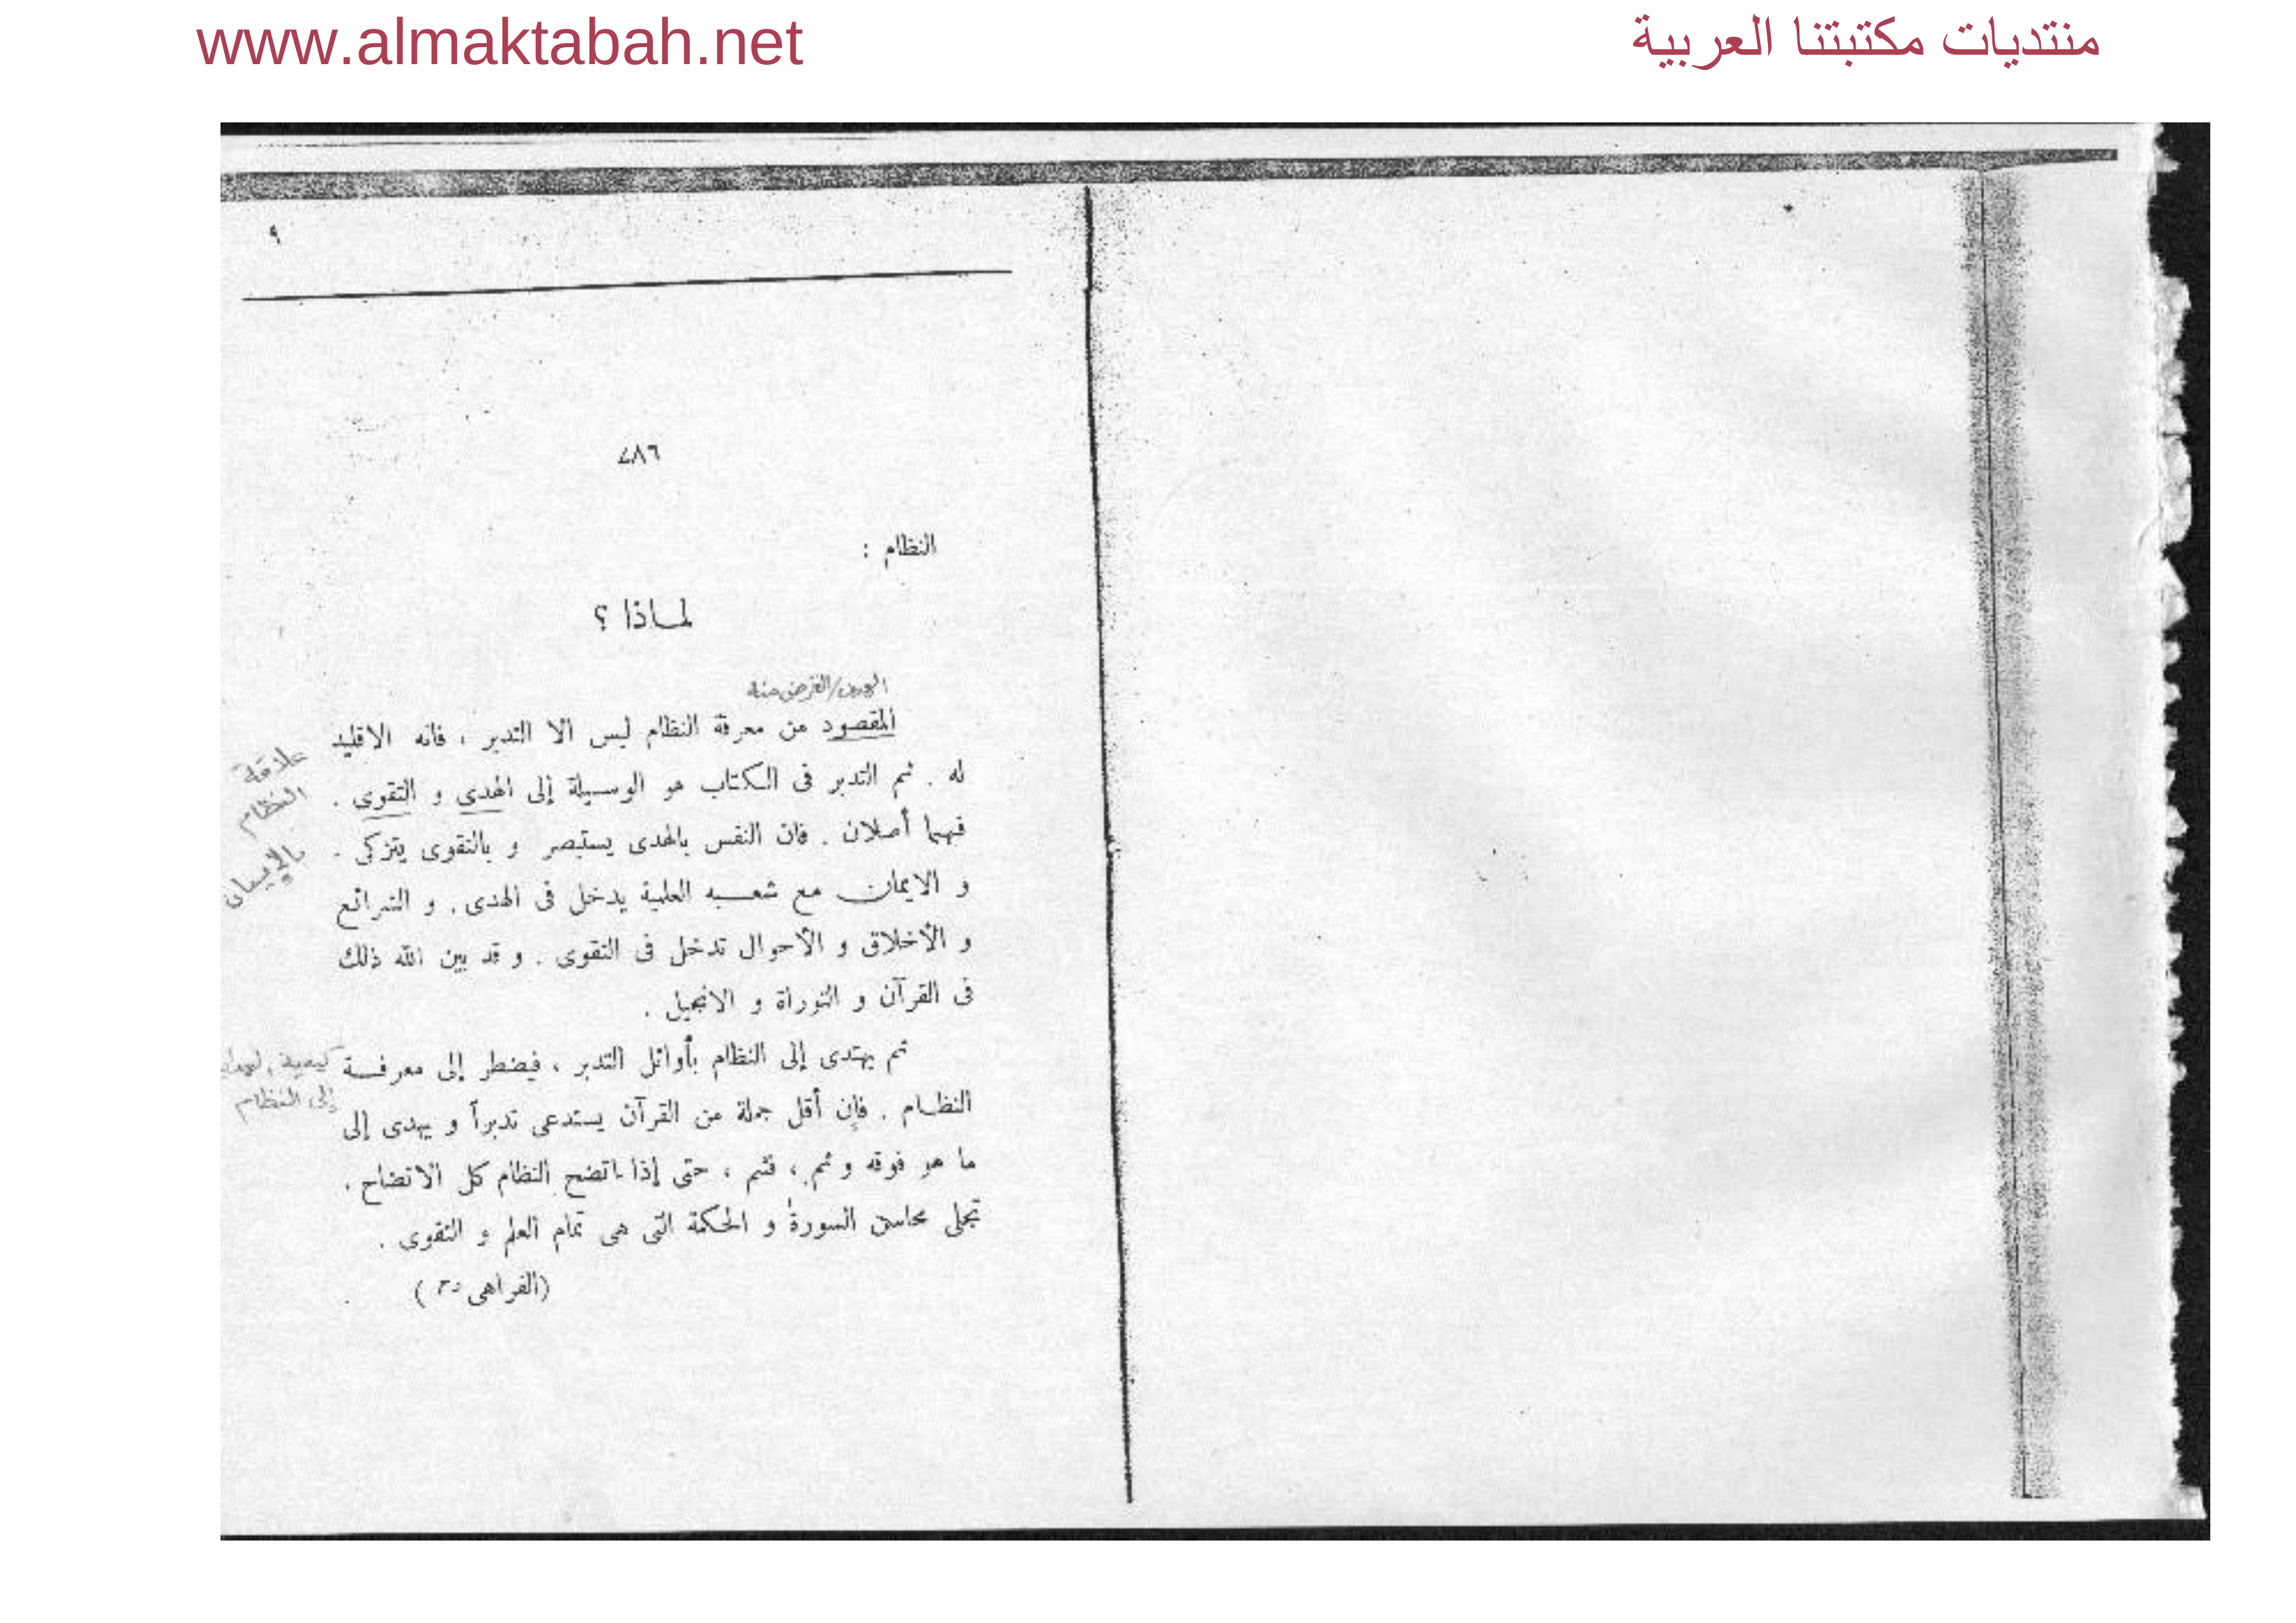 www.almaktabah.net
منتديات مكتبتنا العربية
٩
٧٨٦
النظام :
لمـاذا ؟
الهدف/الغرض منه
المقصود من معرفة النظام ليس الا التدبر ، فانه الاقليد
له . ثم التدبر فى الكتاب هو الوسيلة إلى الهدى و التقوى .
فهما أصلان . فان النفس بالهدى يستبصر و بالتقوى يتزكى .
و الايمان مع شعبه العلمية يدخل فى الهدى . و الشرائع
و الأخلاق و الأحوال تدخل فى التقوى . و قد بين الله ذلك
فى القرآن و التوراة و الانجيل .
علاقة
النظام
بالإيمان
ثم يهتدى إلى النظام بأوائل التدبر ، فيضطر إلى معرفة
النظام . فإن أقل جملة من القرآن يستدعى تدبراً و يهدى إلى
ما هو فوقه و ثم ، فثم ، حتى إذا اتضح النظام كل الاتضاح .
تجلى محاسن السورة و الحكمة التى هى تمام العلم و التقوى .
كيفية
إلى النظام
(الفراهى )